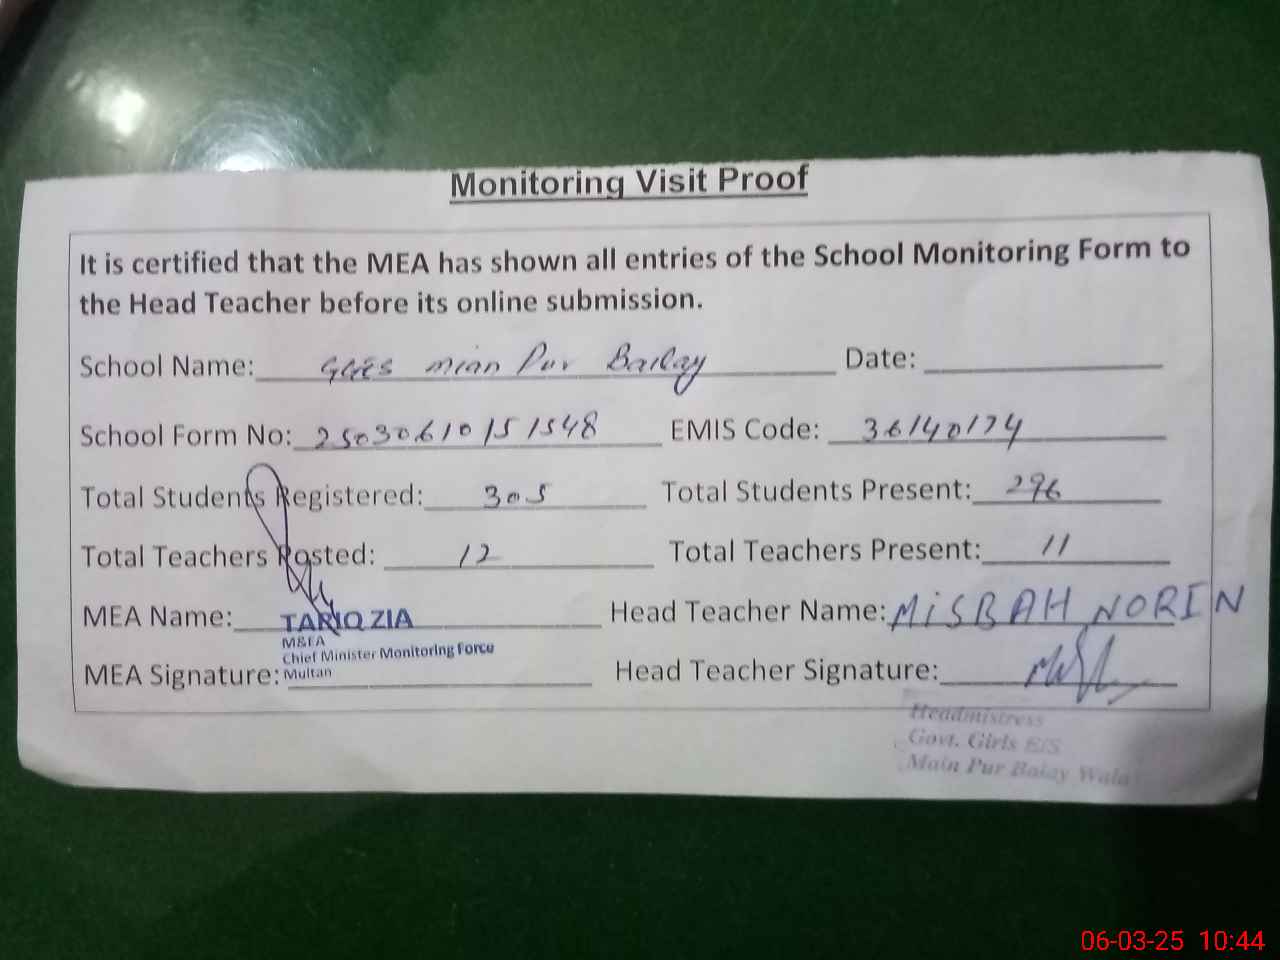 Monitoring Visit Proof
It is certified that the MEA has shown all entries of the School Monitoring Form to
the Head Teacher before its online submission.
School Name: GGES mian Pur Bailay Date:
School Form No: 2503061015 1548 EMIS Code: 36140174
Total Students Registered: 305 Total Students Present: 296
Total Teachers Posted: 12 Total Teachers Present: 11
MEA Name: TARIQ ZIA Head Teacher Name: MiSBAH NORIN
M&EA
Chief Minister Monitoring Force
MEA Signature: Multan Head Teacher Signature:
Headmistress
Govt. Girls E/S
Main Pur Balay Wala
06-03-25 10:44